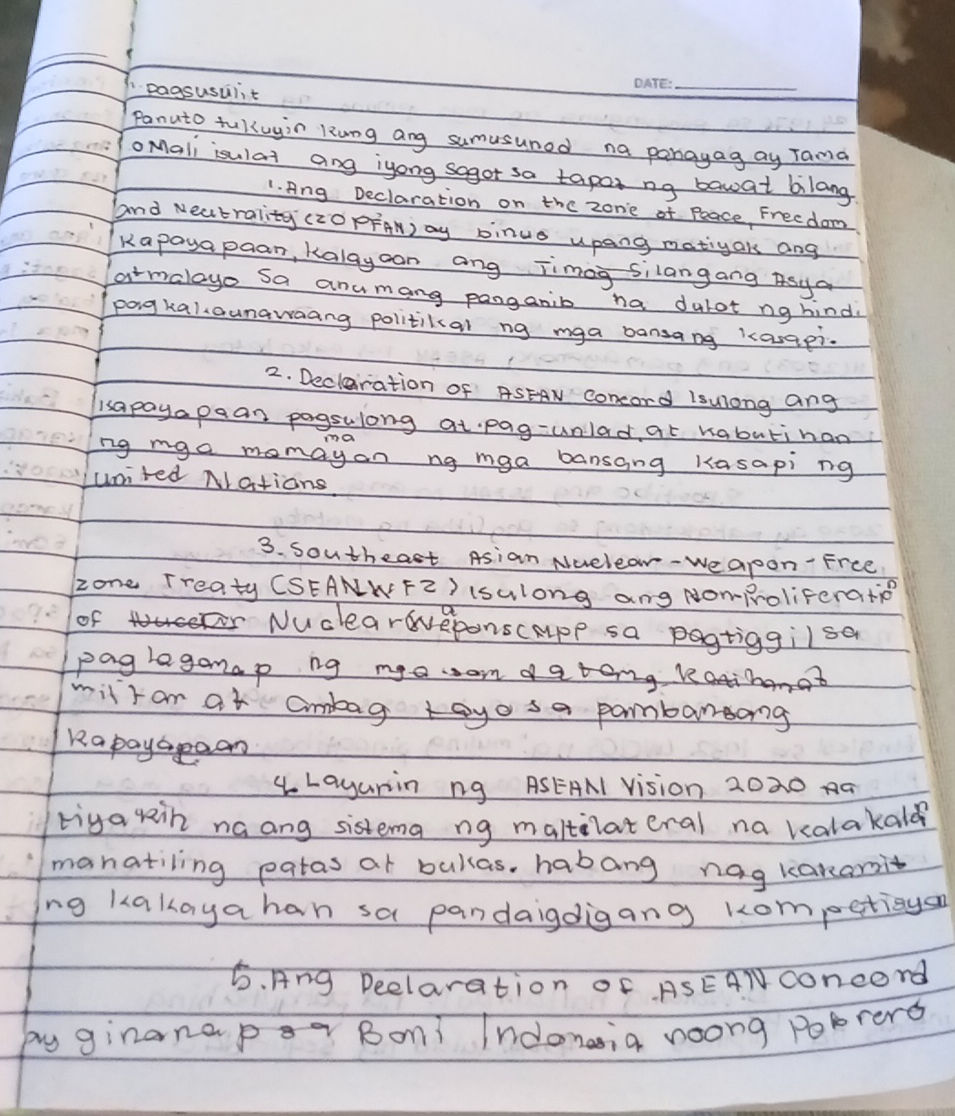 DATE:
1. pagsusulit
Panuto tukuyin kung ang sumusunod na pahayag ay Tama
o Mali isulat ang iyong sagot sa tapat ng bawat bilang
1. Ang Declaration on the zone of Peace, Freedom
and Neutrality (ZOPFAN) ay binuo upang matiyak ang
Kapayapaan, kalayaan ang Timog Silangang Asya
at malayo sa anumang panganib na dulot ng hindi
pagkakaunawaang politikal ng mga bansang kasapi.
2. Declaration of ASEAN Concord Isulong ang
kapayapaan pagsulong at pag-unlad, at kabutihan
ng mga mamamayan ng mga bansang kasapi ng
united Nations.
3. Southeast Asian Nuclear-Weapon-Free
zone Treaty (SEANWFZ) isulong ang Non-Proliferation
of Nuclear Weapons (MPP sa pagtiggil sa
paglaganap ng mga
at ambag tayo sa pambansang
Kapayapaan
4. Layunin ng ASEAN Vision 2020 na
tiyakin na ang sistema ng maltilateral na kalakalan
manatiling patas at bukas. habang nagkakamit
ng kakayahan sa pandaigdigang kompetisyon
5. Ang Declaration of ASEAN Concord
ay ginanap sa Boni Indonesia noong Pebrero